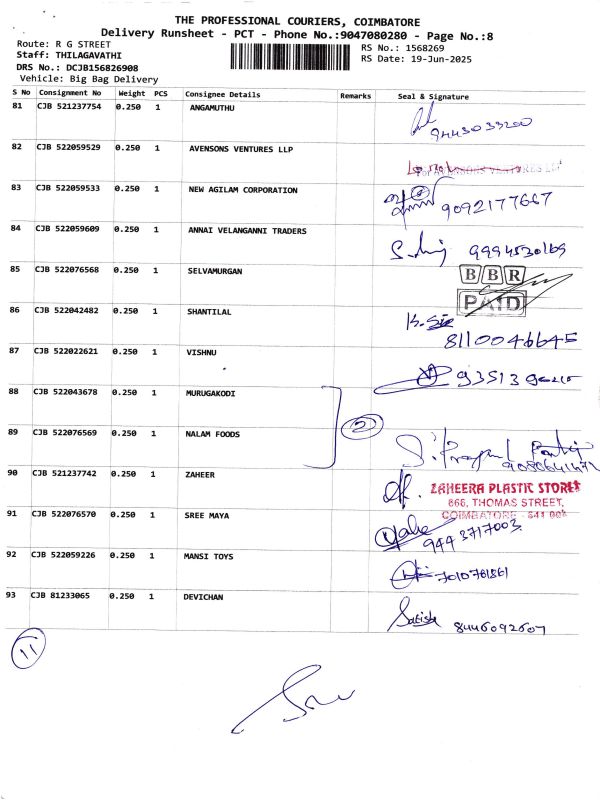 THE PROFESSIONAL COURIERS, COIMBATORE
Delivery Runsheet - PCT - Phone No.:9047080280 - Page No.:8
Route: R G STREET
Staff: THILAGAVATHI
DRS No.: DCJB156826908
Vehicle: Big Bag Delivery
RS No.: 1568269
RS Date: 19-Jun-2025
S No Consignment No Weight PCS Consignee Details Remarks Seal & Signature
81 CJB 521237754 0.250 1 ANGAMUTHU
9443033200
82 CJB 522059529 0.250 1 AVENSONS VENTURES LLP
For AVENSONS VENTURES LLP
83 CJB 522059533 0.250 1 NEW AGILAM CORPORATION
9092177667
84 CJB 522059609 0.250 1 ANNAI VELANGANNI TRADERS
9994530169
85 CJB 522076568 0.250 1 SELVAMURGAN
BBR
PAID
86 CJB 522042482 0.250 1 SHANTILAL
8110046645
87 CJB 522022621 0.250 1 VISHNU
88 CJB 522043678 0.250 1 MURUGAKODI
2
89 CJB 522076569 0.250 1 NALAM FOODS
90 CJB 521237742 0.250 1 ZAHEER
ZAHEERA PLASTIC STORES
666, THOMAS STREET,
COIMBATORE - 641 001
91 CJB 522076570 0.250 1 SREE MAYA
9443717003
92 CJB 522059226 0.250 1 MANSI TOYS
7010761861
93 CJB 81233065 0.250 1 DEVICHAN
Satish 8446092607
11